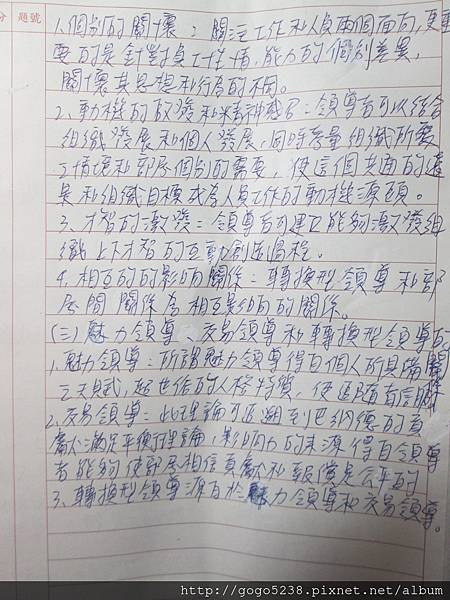 分 題號
1.個別的關懷:關注工作和人員兩個面向,更重
要的是針對員工性情、能力的個別差異,
關懷其思想和行為的不同。
2.動機的啟發和精神感召:領導者可以結合
組織發展和個人發展,同時考量組織所處
之情境和部屬個別的需要,使這個共同的遠
景和組織目標成為人員工作的動機源頭。
3.才智的激發:領導者可建立能夠激發組
織上下才智的互動創造過程。
4.相互的影响關係:轉換型領導和部
屬間關係為相互影响的關係。
(三)魅力領導、交易領導和轉換型領導
1.魅力領導:所謂魅力領導得自個人所具備
之天賦,超世俗的人格特質,使追隨者信服
2.交易領導:此理論可追溯到巴納德的貢
獻、滿足平衡理論,影响力的來源得自領導
者能夠使部屬相信貢獻和報償是公平的
3.轉換型領導源自於魅力領導和交易領導。
http://gogo5238.pixnet.net/album